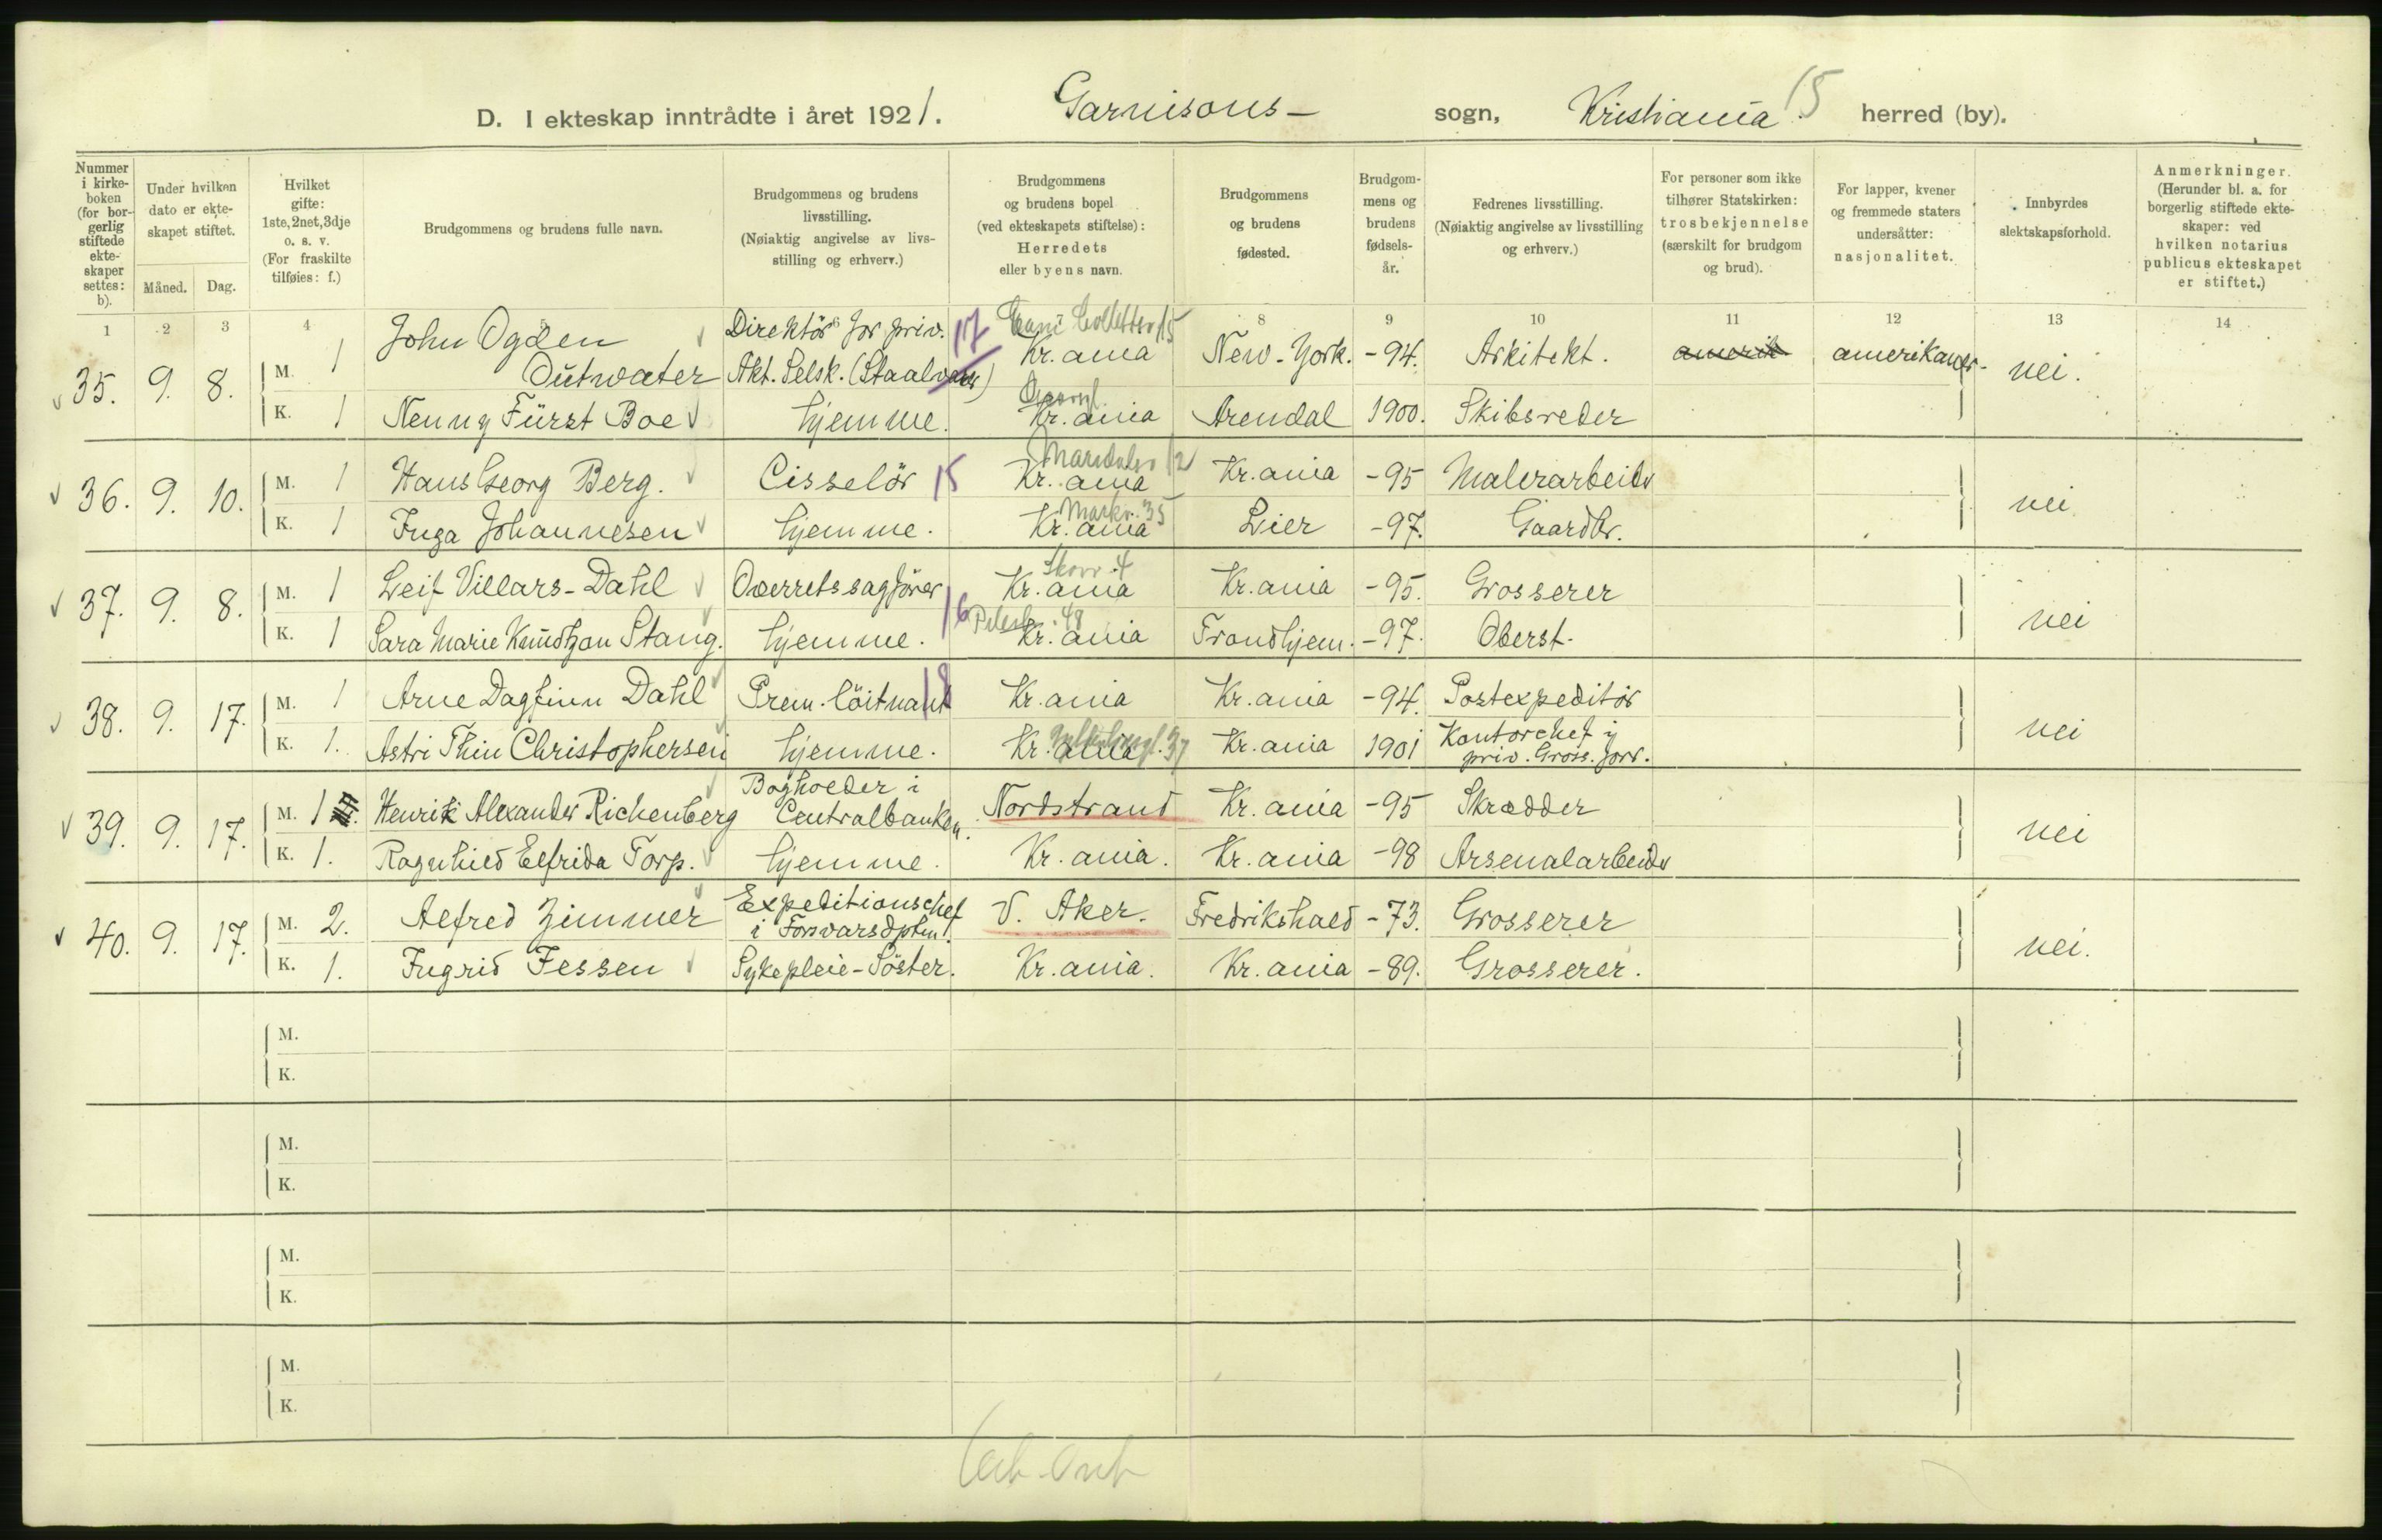 D. I ekteskap inntrådte i året 1921. Garnisons- sogn, Kristiania 15 herred (by).
Nummer i kirkeboken (for borgerlig stiftede ekteskaper settes: b).
Under hvilken dato er ekteskapet stiftet. Måned. Dag.
Hvilket gifte: 1ste, 2net, 3dje o. s. v. (For fraskilte tilføies: f.)
Brudgommens og brudens fulle navn.
Brudgommens og brudens livsstilling. (Nøiaktig angivelse av livsstilling og erhverv.)
Brudgommens og brudens bopel (ved ekteskapets stiftelse): Herredets eller byens navn.
Brudgommens og brudens fødested.
Brudgommens og brudens fødselsår.
Fedrenes livsstilling. (Nøiaktig angivelse av livsstilling og erhverv.)
For personer som ikke tilhører Statskirken: trosbekjennelse (særskilt for brudgom og brud).
For lapper, kvener og fremmede staters undersåtter: nasjonalitet.
Innbyrdes slektskapsforhold.
Anmerkninger. (Herunder bl. a. for borgerlig stiftede ekteskaper: ved hvilken notarius publicus ekteskapet er stiftet.)
1 2 3 4 5 6 8 9 10 11 12 13 14
35. 9. 8. M. 1 John Ogden Outwater Direktör for priv. Akt. Selsk. (Staalvarer) 17 Kr.ania New-York. -94. Arkitekt. amerik amerikaner. nei.
K. 1 Nenny Fürst Boe hjemme. Kr.ania Arendal 1900. Skibsreder
36. 9. 10. M. 1 Hans Georg Berg. Cisselör 15 Maridalsv 12 Kr.ania Kr.ania -95 Malerarbeider nei
K. 1 Inga Johannesen hjemme. Markv. 35 Kr.ania Lier -97. Gaardbr.
37. 9. 8. M. 1 Leif Villars-Dahl Overretssagförer Skovv. 4 Kr.ania Kr.ania -95. Grosserer nei
K. 1 Sara Marie Knudtzon Stang. hjemme. 16 48 Kr.ania Trondhjem. -97. Oberst.
38. 9. 17. M. 1 Arne Dagfinn Dahl Prem. löitnant 18 Kr.ania Kr.ania -94. Postexpeditör nei
K. 1. Astri Thin Christophersen hjemme. Kr.ania 37 Kr.ania 1901 Kontorchef i priv. Gross. forr.
39. 9. 17. M. 1 Henrik Alexander Richenberg Bogholder i Centralbanken. Nordstrand Kr.ania -95 Skrædder nei
K. 1. Ragnhild Elfrida Torp. hjemme. Kr.ania. Kr.ania -98 Arsenalarbeider
40. 9. 17. M. 2. Alfred Zimmer Expeditionschef i Forsvarsdptm. V. Aker. Fredrikshald -73. Grosserer nei.
K. 1. Ingrid Jessen Sykepleie-Söster. Kr.ania. Kr.ania -89. Grosserer.
M.
K.
M.
K.
M.
K.
M.
K.